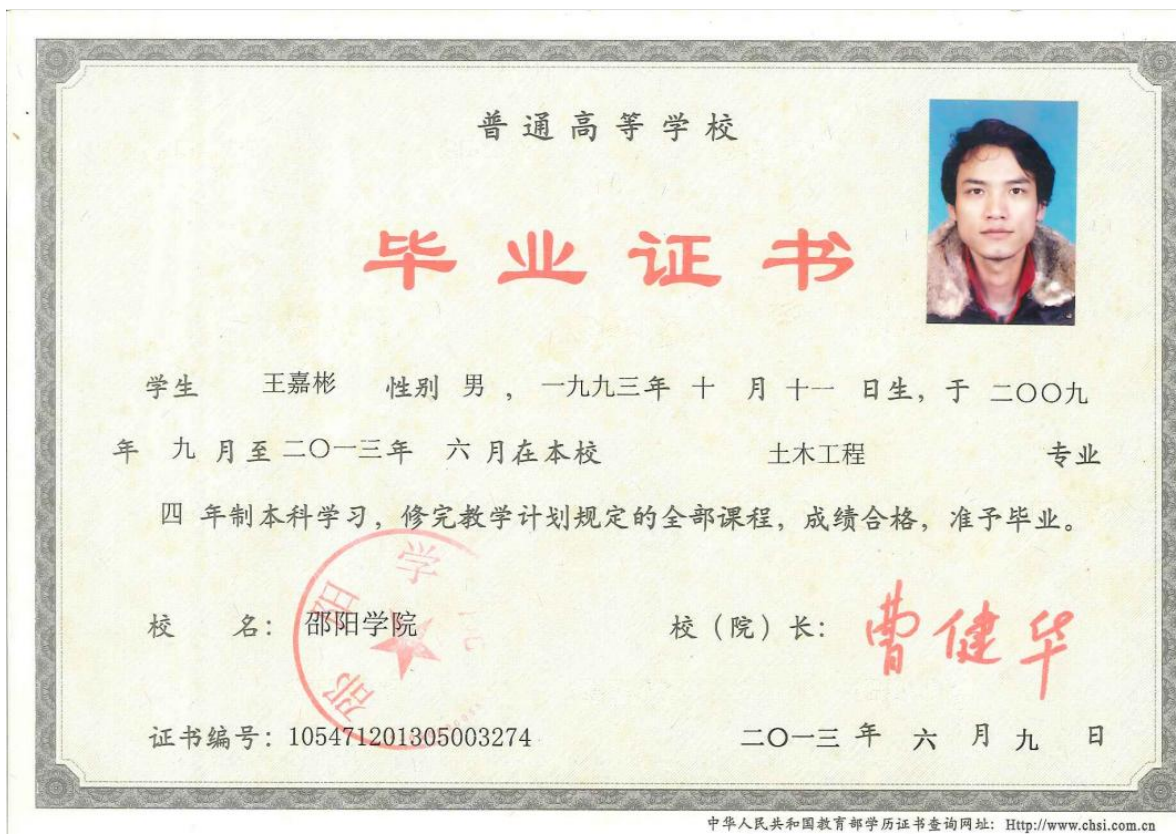 普通高等学校
毕业证书
学生 王嘉彬 性别 男 ，一九九三年 十 月 十一 日生，于 二〇〇九
年 九 月至 二〇一三年 六 月在本校 土木工程 专业
四 年制本科学习，修完教学计划规定的全部课程，成绩合格，准予毕业。
校 名： 邵阳学院 校（院）长： 曹健华
邵阳学院
证书编号：105471201305003274 二〇一三 年 六 月 九 日
中华人民共和国教育部学历证书查询网址：Http://www.chsi.com.cn